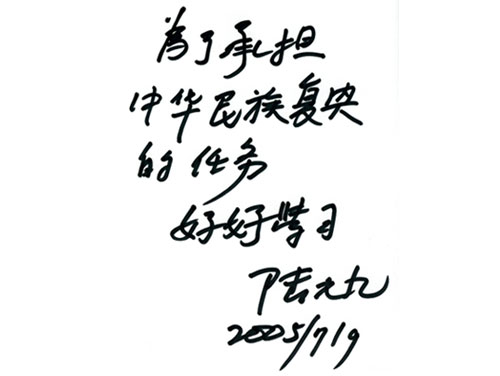 為了承担
中华民族复兴
的任务
好好学习
陆元九
2005/7/9